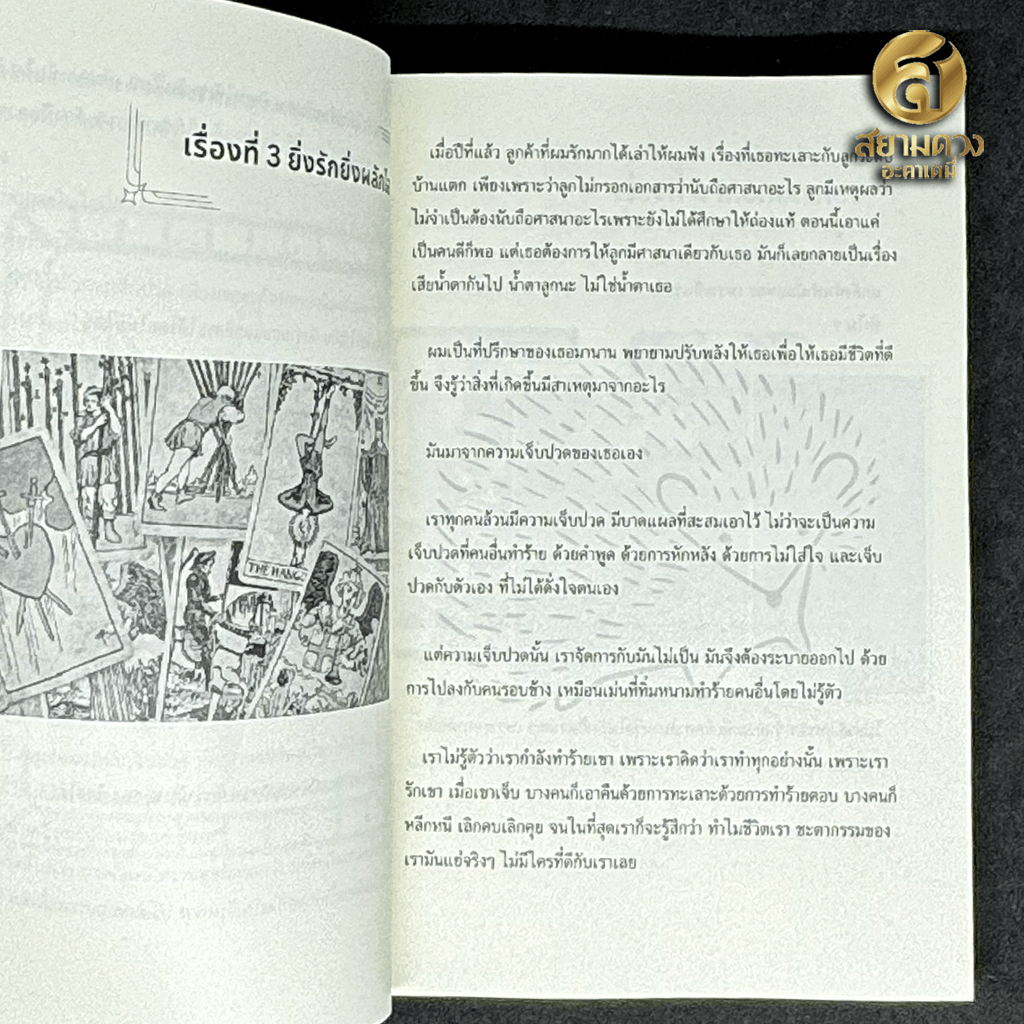 เรื่องที่ 3 ยิ่งรักยิ่งผลัก
THE HANG
ส
สยามดวง
อะคาเดมี่
เมื่อปีที่แล้ว ลูกค้าที่ผมรักมากได้เล่าให้ผมฟัง เรื่องที่เธอทะเลาะกับลูก
บ้านแตก เพียงเพราะว่าลูกไม่กรอกเอกสารว่านับถือศาสนาอะไร ลูกมีเหตุผลว่า
ไม่จำเป็นต้องนับถือศาสนาอะไรเพราะยังไม่ได้ศึกษาให้ถ่องแท้ ตอนนี้เอาแค่
เป็นคนดีก็พอ แต่เธอต้องการให้ลูกมีศาสนาเดียวกับเธอ มันก็เลยกลายเป็นเรื่อง
เสียน้ำตากันไป น้ำตาลูกนะ ไม่ใช่น้ำตาเธอ
ผมเป็นที่ปรึกษาของเธอมานาน พยายามปรับพลังให้เธอเพื่อให้เธอมีชีวิตที่ดี
ขึ้น จึงรู้ว่าสิ่งที่เกิดขึ้นมีสาเหตุมาจากอะไร
มันมาจากความเจ็บปวดของเธอเอง
เราทุกคนล้วนมีความเจ็บปวด มีบาดแผลที่สะสมเอาไว้ ไม่ว่าจะเป็นความ
เจ็บปวดที่คนอื่นทำร้าย ด้วยคำพูด ด้วยการหักหลัง ด้วยการไม่ใส่ใจ และเจ็บ
ปวดกับตัวเอง ที่ไม่ได้ดั่งใจตนเอง
แต่ความเจ็บปวดนั้น เราจัดการกับมันไม่เป็น มันจึงต้องระบายออกไป ด้วย
การไปลงกับคนรอบข้าง เหมือนเม่นที่ทิ่มหนามทำร้ายคนอื่นโดยไม่รู้ตัว
เราไม่รู้ตัวว่าเรากำลังทำร้ายเขา เพราะเราคิดว่าเราทำทุกอย่างนั้น เพราะเรา
รักเขา เมื่อเขาเจ็บ บางคนก็เอาคืนด้วยการทะเลาะด้วยการทำร้ายตอบ บางคนก็
หลีกหนี เลิกคบเลิกคุย จนในที่สุดเราก็จะรู้สึกว่า ทำไมชีวิตเรา ชะตากรรมของ
เรามันแย่จริงๆ ไม่มีใครที่ดีกับเราเลย